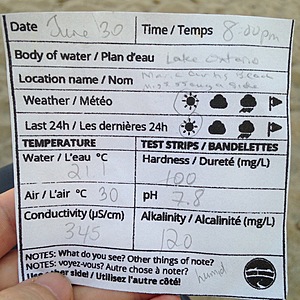 Date June 30 Time / Temps 8:00pm
Body of water / Plan d'eau Lake Ontario
Location name / Nom Beach
Mississauga side
Weather / Météo
Last 24h / Les dernières 24h
TEMPERATURE TEST STRIPS / BANDELETTES
Water / L'eau °C Hardness / Dureté (mg/L)
21.1 100
Air / L'air °C 30 pH 7.8
Conductivity (µS/cm) Alkalinity / Alcalinité (mg/L)
345 120
NOTES: What do you see? Other things of note?
NOTES: voyez-vous? Autre chose à noter?
Use other side! / Utilisez l'autre côté! humid